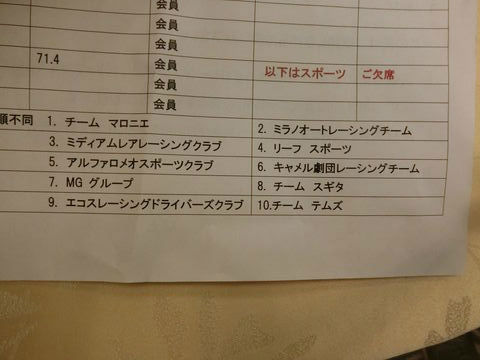 会員
会員
会員
71.4 会員
会員 以下はスポーツ ご欠席
会員
順不同 1. チーム マロニエ 2. ミラノオートレーシングチーム
3. ミディアムレアレーシングクラブ 4. リーフ スポーツ
5. アルファロメオスポーツクラブ 6. キャメル劇団レーシングチーム
7. MG グループ 8. チーム スギタ
9. エコスレーシングドライバーズクラブ 10.チーム テムズ